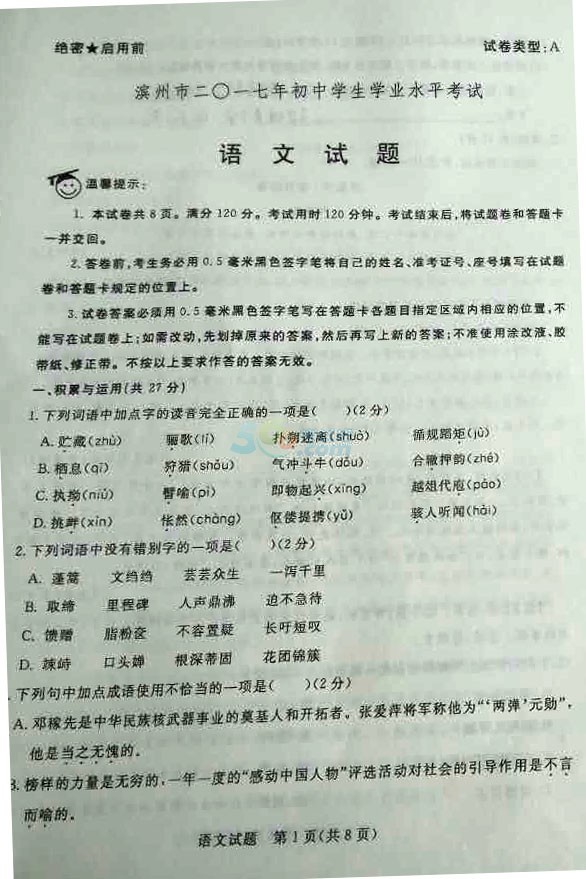 绝密★启用前 试卷类型:A
滨州市二〇一七年初中学生学业水平考试
语文试题
温馨提示:
1. 本试卷共8页。满分120分。考试用时120分钟。考试结束后,将试题卷和答题卡
一并交回。
2. 答卷前,考生务必用0.5毫米黑色签字笔将自己的姓名、准考证号、座号填写在试题
卷和答题卡规定的位置上。
3. 试卷答案必须用0.5毫米黑色签字笔写在答题卡各题目指定区域内相应的位置,不
能写在试题卷上;如需改动,先划掉原来的答案,然后再写上新的答案;不准使用涂改液、胶
带纸、修正带。不按以上要求作答的答案无效。
一、积累与运用(共27分)
1. 下列词语中加点字的读音完全正确的一项是( )(2分)
A. 贮藏(zhù) 骊歌(lí) 扑朔迷离(shuò) 循规蹈矩(jù)
B. 栖息(qī) 狩猎(shǒu) 气冲斗牛(dǒu) 合辙押韵(zhé)
C. 执拗(niù) 譬喻(pì) 即物起兴(xīng) 越俎代庖(páo)
D. 挑衅(xìn) 怅然(chàng) 伛偻提携(yǔ) 骇人听闻(hài)
2. 下列词语中没有错别字的一项是( )(2分)
A. 蓬蒿 文绉绉 芸芸众生 一泻千里
B. 取缔 里程碑 人声鼎沸 迫不急待
C. 馈赠 脂粉奁 不容置疑 长吁短叹
D. 竦峙 口头婵 根深蒂固 花团锦簇
. 下列句中加点成语使用不恰当的一项是( )(2分)
A. 邓稼先是中华民族核武器事业的奠基人和开拓者。张爱萍将军称他为“‘两弹’元勋”,
他是当之无愧的。
B. 榜样的力量是无穷的,一年一度的“感动中国人物”评选活动对社会的引导作用是不言
而喻的。
语文试题 第1页(共8页)